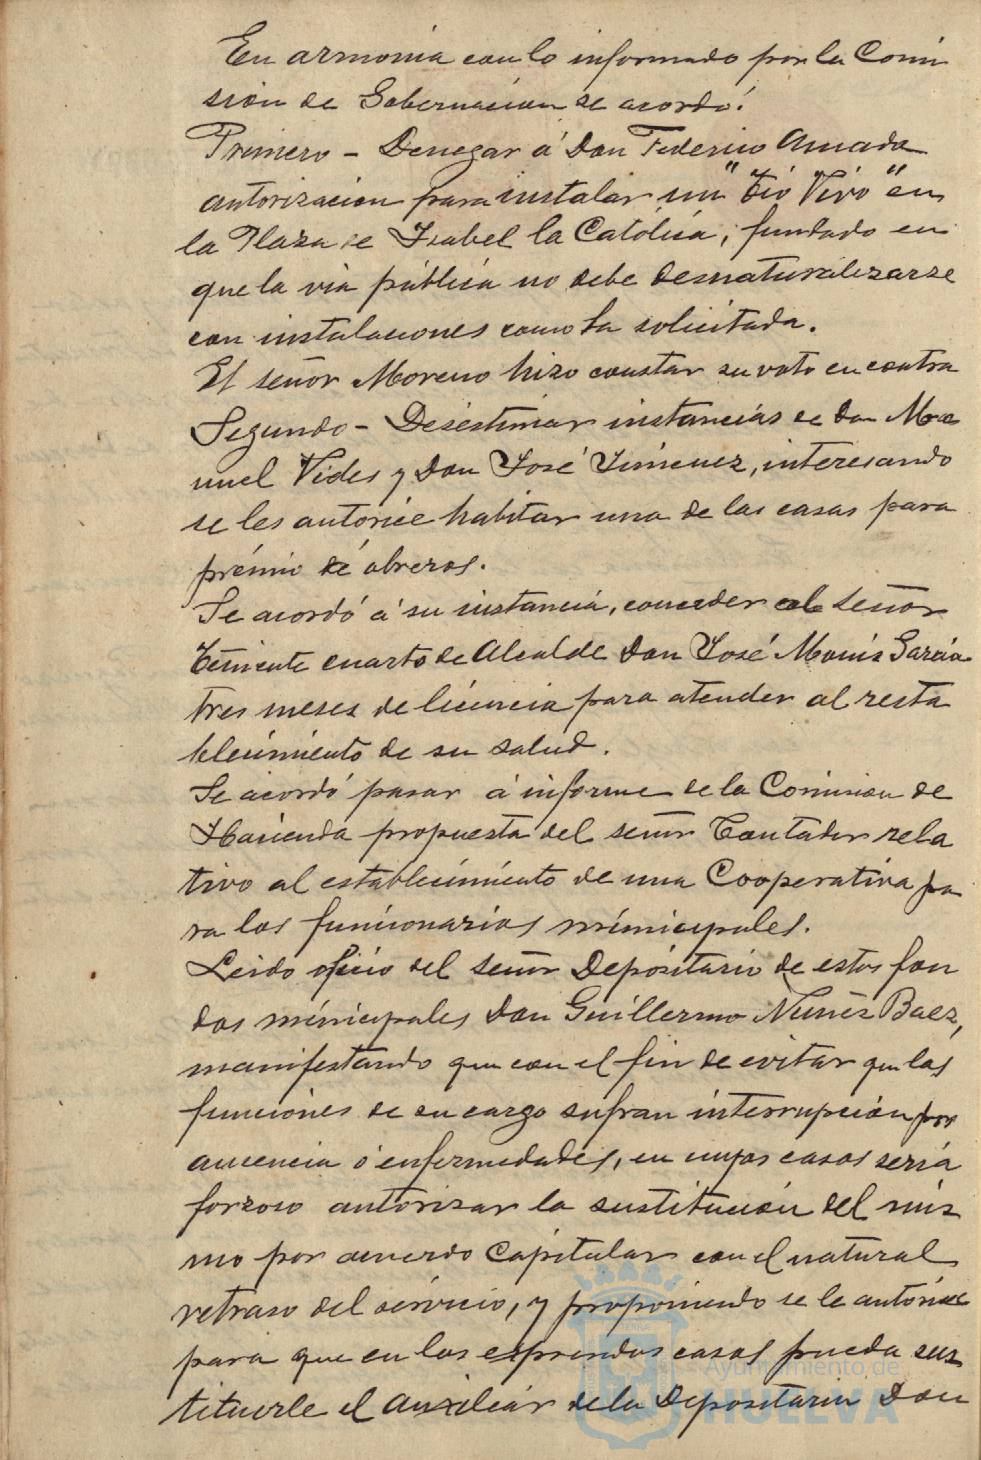 En armonia con lo informado por la Comi
sión de Gobernacion se acordó:
Primero - Denegar á Don Federico Amada
autorizacion para instalar un "Tio Vivo" en
la Plaza de Isabel la Católica, fundado en
que la via pública no debe desnaturalizarse
con instalaciones como la solicitada.
El señor Moreno hizo constar su voto en contra
Segundo - Desestimar instancias de Don Ma
nuel Vides y Don José Jimenez, interesando
se les autorice habitar una de las casas para
prémio de obreros.
Se acordó á su instancia, conceder al Señor
Teniente cuarto de Alcalde Don José Monis Garcia
tres meses de licencia para atender al resta
blecimiento de su salud.
Se acordó pasar á informe de la Comision de
Hacienda propuesta del señor Contador rela
tivo al establecimiento de una Cooperativa pa
ra los funcionarios municipales.
Leido oficio del señor Depositario de estos fon
dos municipales Don Guillermo Nuñez Baez,
manifestando que con el fin de evitar que las
funciones de su cargo sufran interrupcion por
ausencia ó enfermedades, en cuyos casos seria
forzoso autorizar la sustitución del mis
mo por acuerdo Capitular con el natural
retraso del servicio, y proponiendo se le autorice
para que en los espresados casos pueda sus
tituirle el Auxiliar de la Depositaria Don
Ayuntamiento de
HUELVA